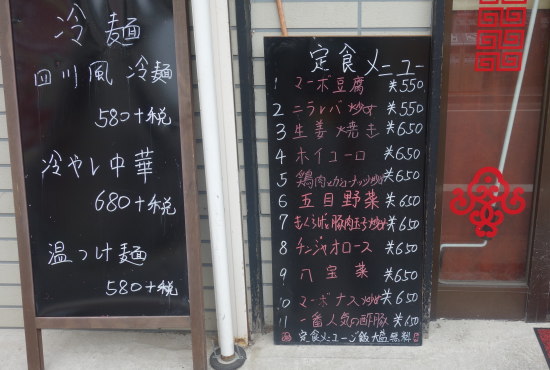 冷麺
四川風冷麺
580+税
冷やし中華
680+税
温つけ麺
580+税
定食メニュー
1 マーボ豆腐 ¥550
2 ニラレバ炒め ¥550
3 生姜焼き ¥650
4 ホイコーロ ¥650
5 鶏肉とカシューナッツ炒め ¥650
6 五目野菜 ¥650
7 もくらげ、豚肉玉子炒め ¥650
8 チンジャオロース ¥650
9 八宝菜 ¥650
10 マーボナス炒め ¥650
11 一番人気の酢豚 ¥650
定食メニューご飯大盛無料